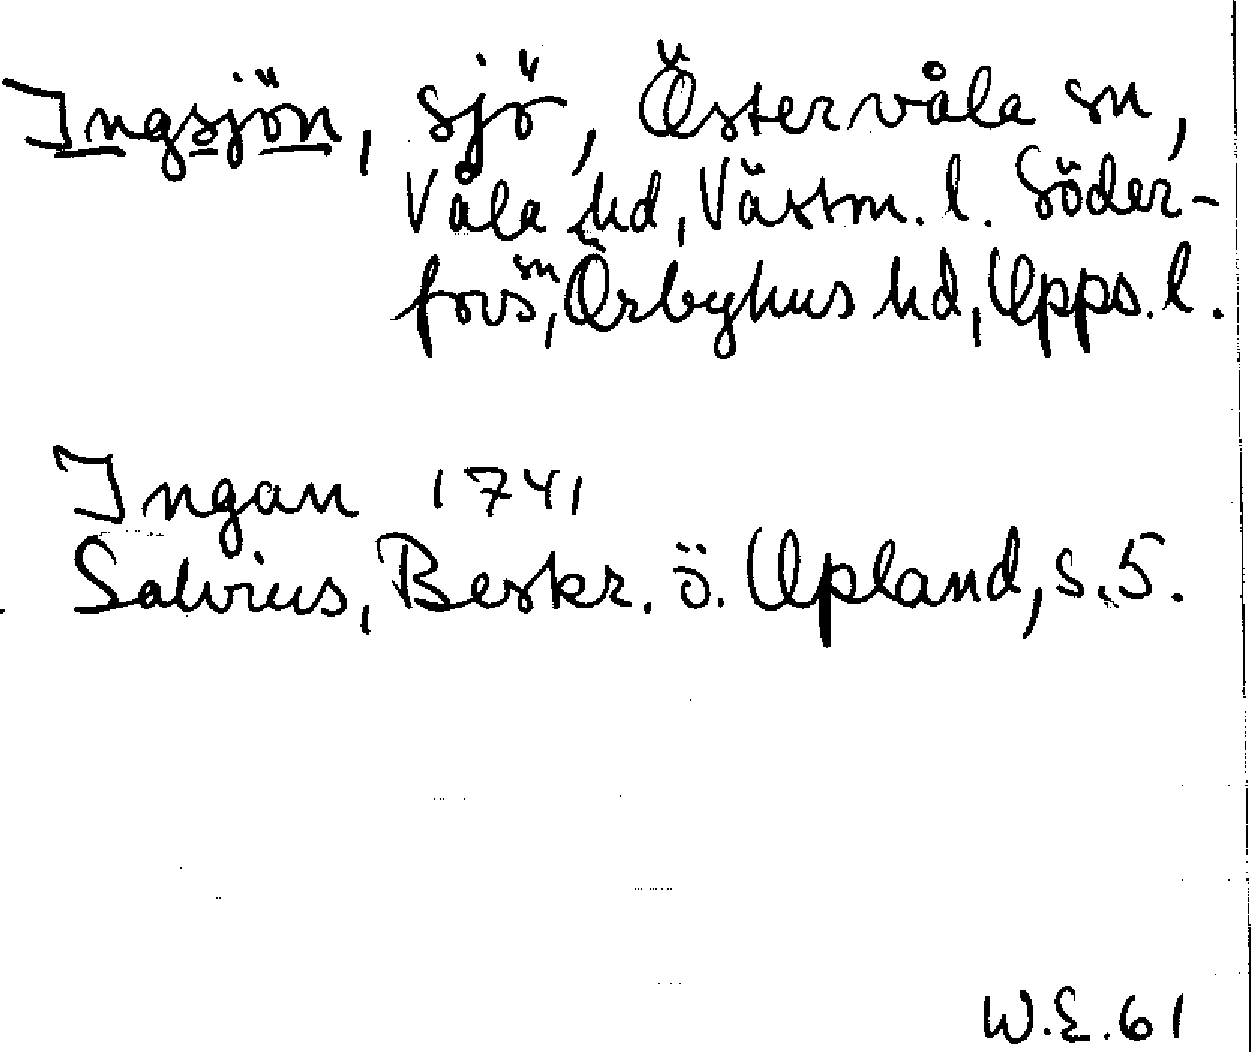 Ingsjön, sjö, Östervåla sn,
Våla hd, Västm. l. Söder-
fors sn, Örbyhus hd, Upps. l.
Ingan 1741
Salvius, Beskr. ö. Upland, s. 5.
W.E. 61